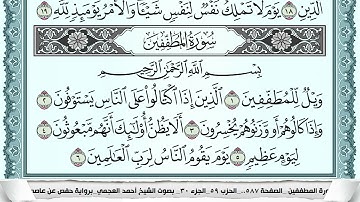 ٱلدِّينِ ١٨ يَوْمَ لَا تَمْلِكُ نَفْسٌ لِّنَفْسٍ شَيْـًٔا وَٱلْأَمْرُ يَوْمَئِذٍ لِّلَّهِ ١٩
سُورَةُ المُطَفِّفِينَ
بِسْمِ ٱللَّهِ ٱلرَّحْمَٰنِ ٱلرَّحِيمِ
وَيْلٌ لِّلْمُطَفِّفِينَ ١ ٱلَّذِينَ إِذَا ٱكْتَالُوا۟ عَلَى ٱلنَّاسِ يَسْتَوْفُونَ ٢
وَإِذَا كَالُوهُمْ أَو وَّزَنُوهُمْ يُخْسِرُونَ ٣ أَلَا يَظُنُّ أُو۟لَٰٓئِكَ أَنَّهُم مَّبْعُوثُونَ ٤
لِيَوْمٍ عَظِيمٍ ٥ يَوْمَ يَقُومُ ٱلنَّاسُ لِرَبِّ ٱلْعَٰلَمِينَ ٦
رة المطففين _ الصفحة ٥٨٧ _ الحزب ٥٩ _ الجزء ٣٠ _ بصوت الشيخ أحمد العجمي _ برواية حفص عن عاصم